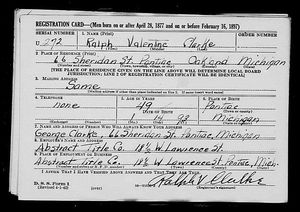 REGISTRATION CARD—(Men born on or after April 28, 1877 and on or before February 16, 1897)
SERIAL NUMBER 1. NAME (Print) ORDER NUMBER
U 272 Ralph Valentine Clarke
2. PLACE OF RESIDENCE (Print)
66 Sheridan St. Pontiac Oakland Michigan
[THE PLACE OF RESIDENCE GIVEN ON THE LINE ABOVE WILL DETERMINE LOCAL BOARD
JURISDICTION; LINE 2 OF REGISTRATION CERTIFICATE WILL BE IDENTICAL]
3. MAILING ADDRESS
Same
4. TELEPHONE 5. AGE IN YEARS 6. PLACE OF BIRTH
none 49 Pontiac
DATE OF BIRTH
1 14 93 Michigan
7. NAME AND ADDRESS OF PERSON WHO WILL ALWAYS KNOW YOUR ADDRESS
George Clarke - 66 Sheridan St. Pontiac, Michigan
8. EMPLOYER'S NAME AND ADDRESS
Abstract Title Co. 18½ W Lawrence St.
9. PLACE OF EMPLOYMENT OR BUSINESS
Abstract Title Co. 18½ W Lawrence St. Pontiac, Mich.
I AFFIRM THAT I HAVE VERIFIED ABOVE ANSWERS AND THAT THEY ARE TRUE.
D. S. S. Form 1
Ralph V. Clarke